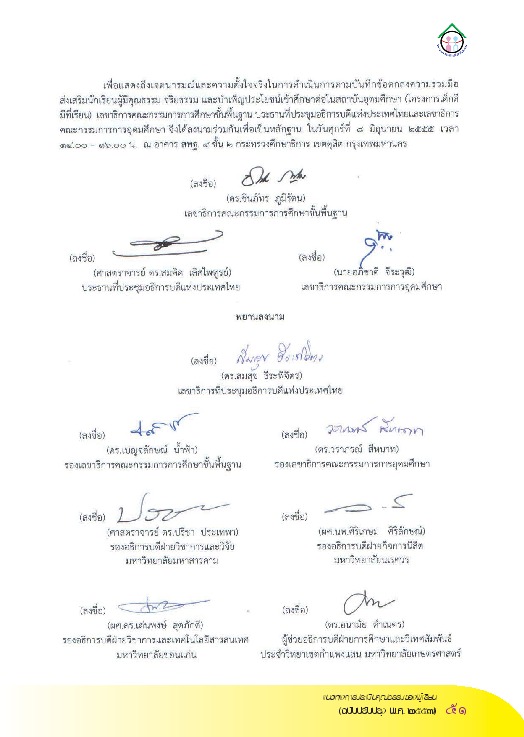 เพื่อแสดงถึงเจตนารมณ์และความตั้งใจจริงในการดำเนินการตามบันทึกข้อตกลงความร่วมมือ
ส่งเสริมนักเรียนผู้มีคุณธรรม จริยธรรม และบำเพ็ญประโยชน์เข้าศึกษาต่อในสถาบันอุดมศึกษา (โครงการเด็กดี
มีที่เรียน) เลขาธิการคณะกรรมการการศึกษาขั้นพื้นฐาน ประธานที่ประชุมอธิการบดีแห่งประเทศไทยและเลขาธิการ
คณะกรรมการการอุดมศึกษา จึงได้ลงนามร่วมกันเพื่อเป็นหลักฐาน ในวันศุกร์ที่ ๘ มิถุนายน ๒๕๕๕ เวลา
๑๔.๐๐ – ๑๖.๐๐ น. ณ อาคาร สพฐ. ๔ ชั้น ๒ กระทรวงศึกษาธิการ เขตดุสิต กรุงเทพมหานคร
(ลงชื่อ)
(ดร.ชินภัทร ภูมิรัตน)
เลขาธิการคณะกรรมการการศึกษาขั้นพื้นฐาน
(ลงชื่อ) (ลงชื่อ)
(ศาสตราจารย์ ดร.สมคิด เลิศไพฑูรย์) (นายอภิชาติ จีระวุฒิ)
ประธานที่ประชุมอธิการบดีแห่งประเทศไทย เลขาธิการคณะกรรมการการอุดมศึกษา
พยานลงนาม
(ลงชื่อ)
(ดร.สมสุข ธีระพิจิตร)
เลขาธิการที่ประชุมอธิการบดีแห่งประเทศไทย
(ลงชื่อ) (ลงชื่อ)
(ดร.เบญจลักษณ์ น้ำฟ้า) (ดร.วราภรณ์ สีหนาท)
รองเลขาธิการคณะกรรมการการศึกษาขั้นพื้นฐาน รองเลขาธิการคณะกรรมการการอุดมศึกษา
(ลงชื่อ) (ลงชื่อ)
(ศาสตราจารย์ ดร.ปรีชา ประเทพา) (ผศ.นพ.ศิริเกษม ศิริลักษณ์)
รองอธิการบดีฝ่ายวิชาการและวิจัย รองอธิการบดีฝ่ายกิจการนิสิต
มหาวิทยาลัยมหาสารคาม มหาวิทยาลัยนเรศวร
(ลงชื่อ) (ลงชื่อ)
(ผศ.ดร.เด่นพงษ์ สุดภักดี) (ดร.อนามัย ดำเนตร)
รองอธิการบดีฝ่ายวิชาการและเทคโนโลยีสารสนเทศ ผู้ช่วยอธิการบดีฝ่ายการศึกษาและวิเทศสัมพันธ์
มหาวิทยาลัยขอนแก่น ประจำวิทยาเขตกำแพงแสน มหาวิทยาลัยเกษตรศาสตร์
แนวทางการประเมินคุณธรรมของผู้เรียน
(ฉบับปรับปรุง พ.ศ. ๒๕๕๗) ๕๑